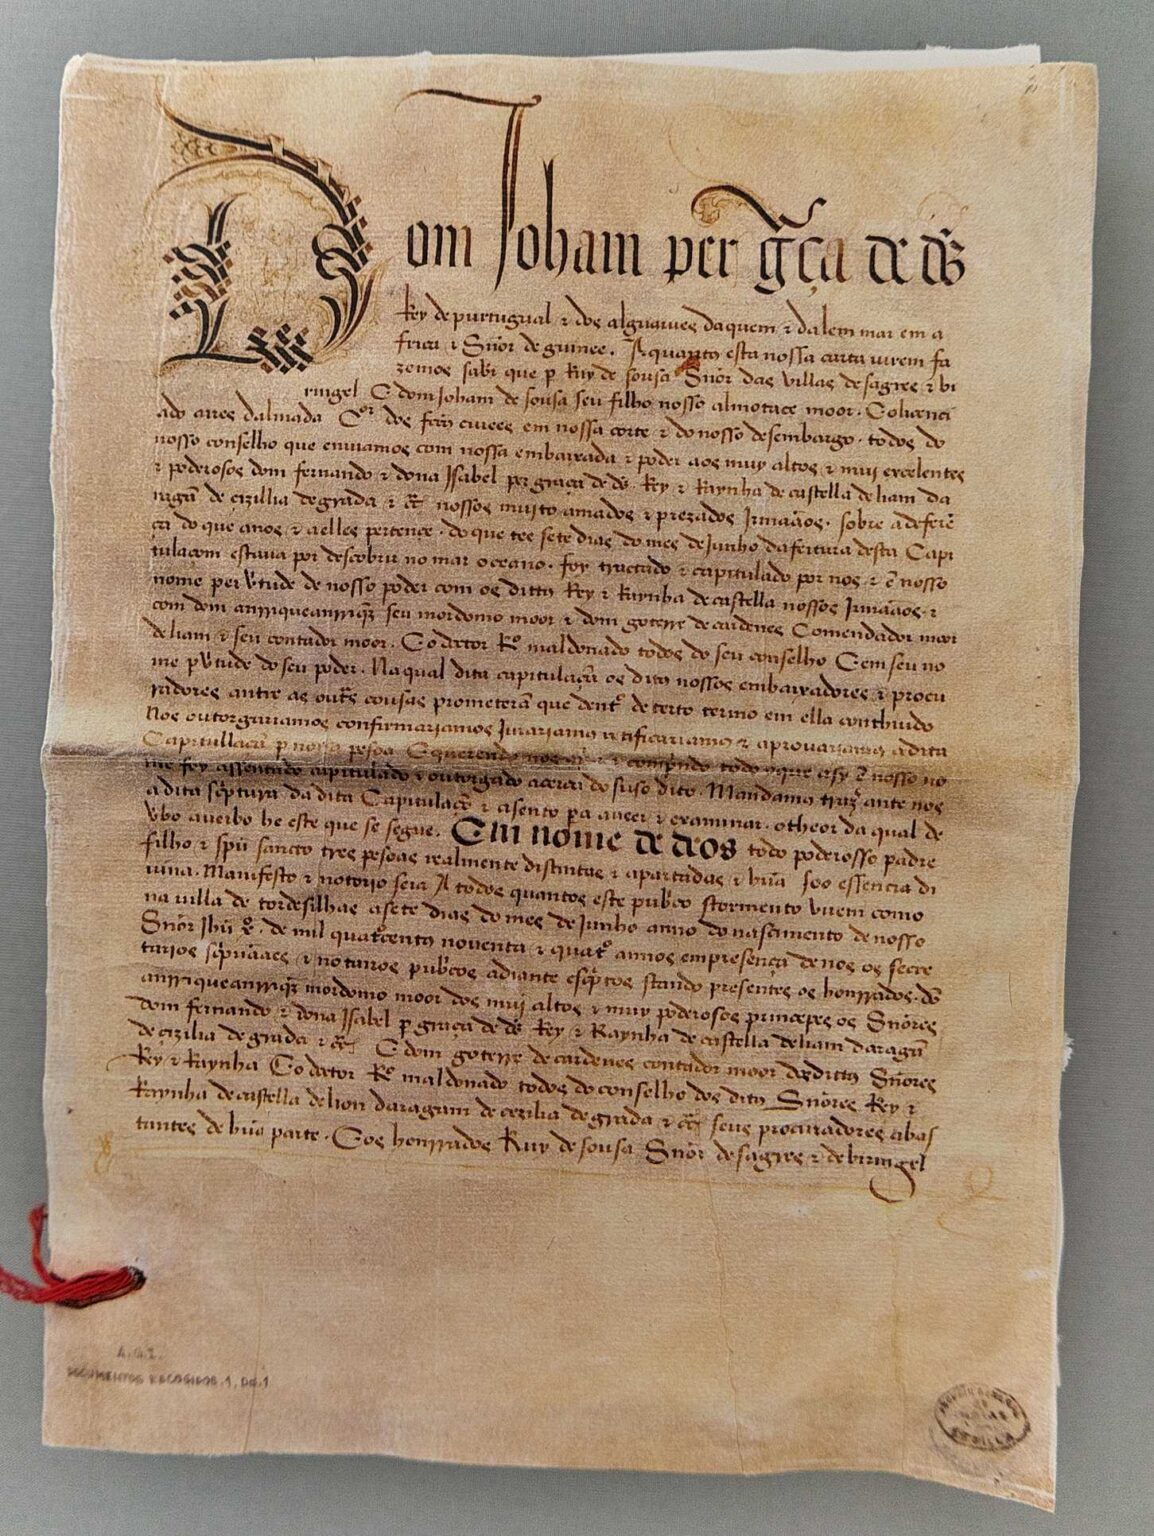 Dom Joham per gr̃ça de ds̃
Rey de purtugual & dos alguarves daquem & dalem mar em a
frica & Sñor de guinee. A quantos esta nossa carta virem fa
zemos saber que p Ruy de sousa Sñor das villas de sagres & bi
ringel E dom Joham de sousa seu filho nosso almotace moor. E o licenci
ado aires dalmada Cor dos fectos civees em nossa corte & do nosso desembargo. todos do
nosso conselho que enviamos com nossa embaixada & poder aos muy altos & muy excelentes
& poderosos dom fernando & dona Isabel per graça de ds̃. Rey & Raynha de castella de liam da
ragam de cizillia de grãda & cr̃ nossos muito amados & prezados Irmaãos. sobre a deferẽ
ça do que a nos & a elles pertence. do que tee sete dias do mes de Junho da feitura desta Capi
tulacom estava por descobrir no mar oceano. foy tractado & capitulado por nos & ẽ nosso
nome per vertude de nosso poder com os dittos Rey & Raynha de castella nossos Irmaãos. &
com dom anrrique anrriquez seu mordomo moor & dom goterre de cardenes Comendador moor
de liam & seu contador moor. E o doctor Ro maldonado todos do seu conselho E em seu no
me p vertude do seu poder. Na qual dita capitulaçam os ditos nossos embaixadores & procu
radores antre as outras cousas prometeram que dentro de certo termo em ella conthiudo
Nos outorgariamos confirmariamos Jurariamos retificariamos & aprovariamos a dita
Capitullaçam p nossa pesoa E querendo nos & comprindo todo o que asy ẽ nosso no
me foy assentado capitulado & outorgado acerca do suso dito. Mandamos trazer ante nos
a dita scriptura da dita Capitulaçam & asento pera a veer & examinar. o theor da qual de
vbo a verbo he este que se segue. Em nome de deos todo poderosso padre
filho & spũ sancto tres pesoas realmente distintas & apartadas & hũa soo essencia di
vina. Manifesto & notorio seia A todos quantos este pubrico stormento virem como
na villa de tordesilhas a sete dias do mes de Junho anno do nascimento de nosso
Sñor Jhũ xo. de mil quatrocentos noventa & quatro annos em presença de nos os secre
tarios scprivaães & notarios pubricos adiante escriptos stando presentes os honrrados. dõ
anrrique anrriquez mordomo moor dos muy altos & muy poderosos princepes os Sñores
dom fernando & dona Isabel p graça de ds̃ Rey & Raynha de castella de liam daragam
de cizilia de grãda & cr̃ E dom goterre de cardenes contador moor dos dittos Sñores
Rey & Raynha E o doctor Ro maldonado todos do conselho dos ditos Sñores Rey &
Raynha de castella de lion daragam de cezilia de grãda & cr̃ seus procuradores abas
tantes de hũa parte. E os honrrados Ruy de sousa Sñor de sagres & de biringel
A.G.I.
DOCUMENTOS ESCOGIDOS.1, DC.1